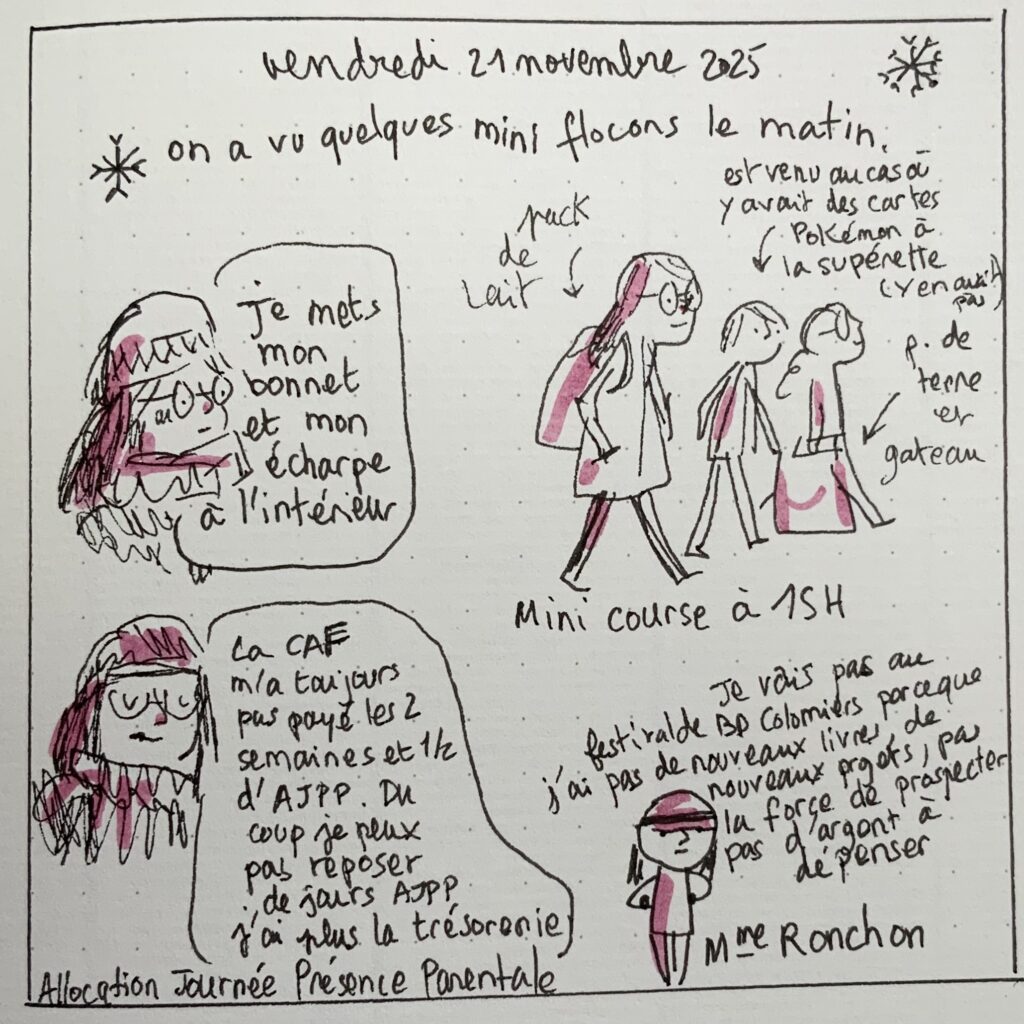 vendredi 21 novembre 2025
on a vu quelques mini flocons le matin.
je mets
mon
bonnet
et mon
écharpe
à l'intérieur
pack
de
lait
est venu au cas où
y avait des cartes
Pokémon à
la supérette
(y en avait
pas)
p. de
terre
et
gateau
Mini course à 15H
La CAF
m'a toujours
pas payé les 2
semaines et 1/2
d'AJPP. Du
coup je peux
pas reposer
de jours AJPP
j'ai plus la trésorerie
Allocation Journée Présence Parentale
Je vais pas au
festival de BD Colomiers parceque
j'ai pas de nouveaux livres, de
nouveaux projets, pas
la force de prospecter
pas d'argent à
dépenser
Mme Ronchon